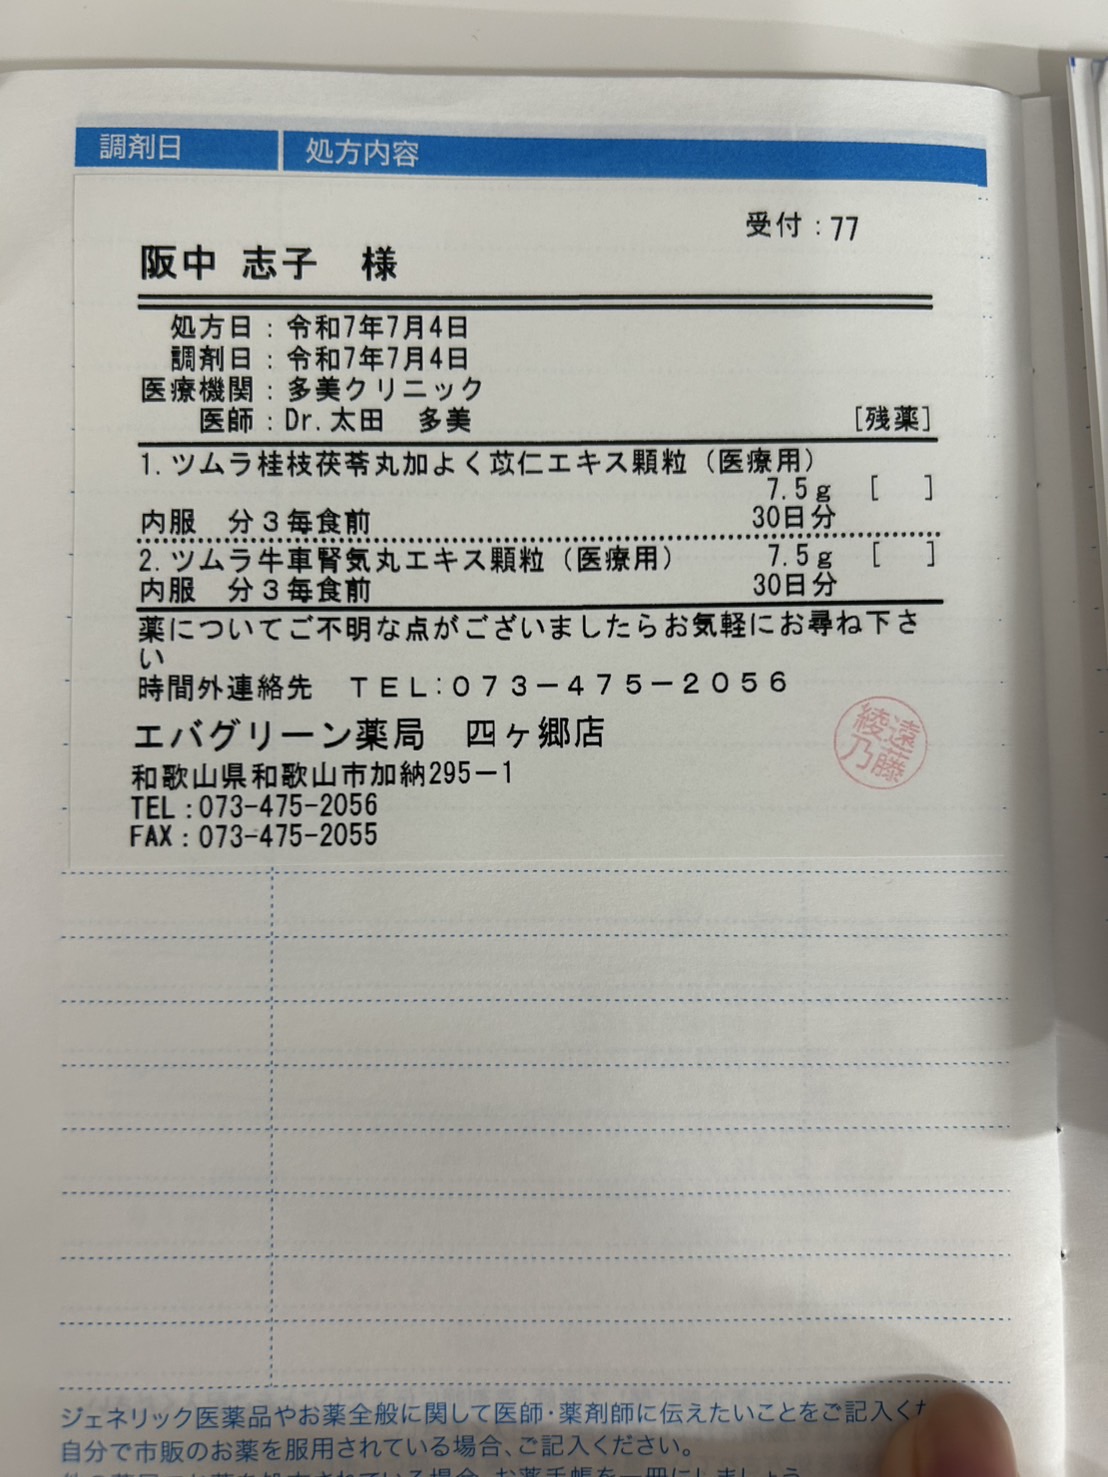 調剤日 処方内容
受付:77
阪中 志子 様
処方日:令和7年7月4日
調剤日:令和7年7月4日
医療機関:多美クリニック
医師:Dr.太田 多美 [残薬]
1.ツムラ桂枝茯苓丸加よく苡仁エキス顆粒(医療用)
7.5g [ ]
内服 分3毎食前 30日分
2.ツムラ牛車腎気丸エキス顆粒(医療用) 7.5g [ ]
内服 分3毎食前 30日分
薬についてご不明な点がございましたらお気軽にお尋ね下さ
い
時間外連絡先 TEL:073-475-2056
エバグリーン薬局 四ヶ郷店
遠藤綾乃
和歌山県和歌山市加納295-1
TEL:073-475-2056
FAX:073-475-2055
ジェネリック医薬品やお薬全般に関して医師・薬剤師に伝えたいことをご記入くだ
自分で市販のお薬を服用されている場合、ご記入ください。